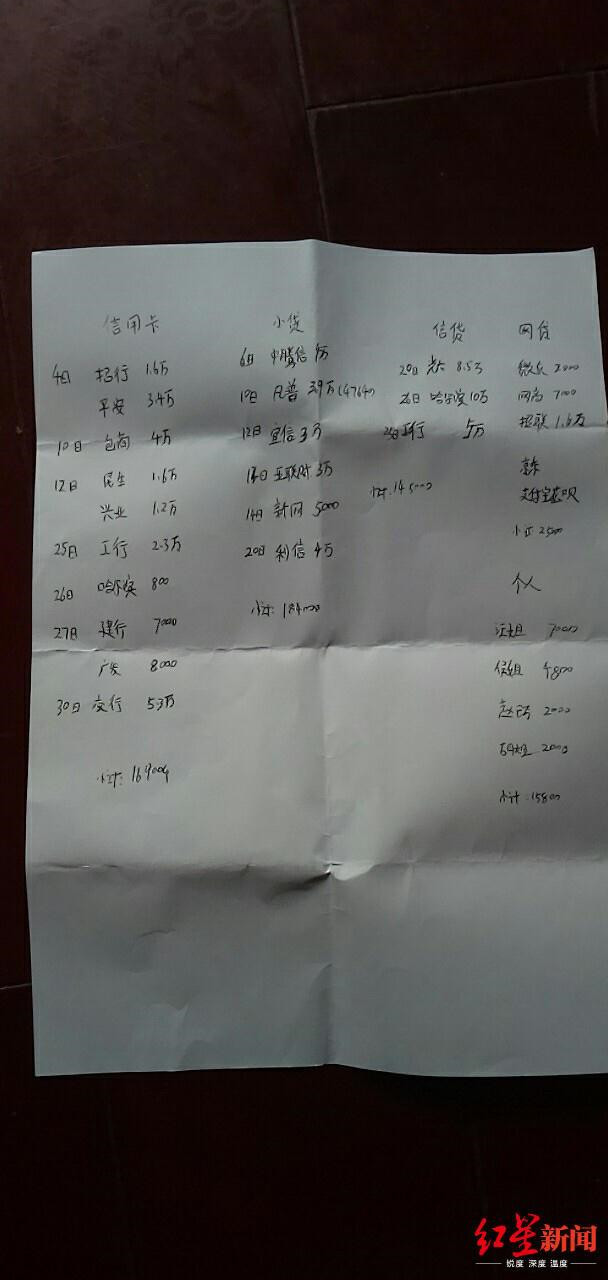 信用卡
4日 招行 1.6万
平安 3.4万
10日 包商 4万
12日 民生 1.6万
兴业 1.2万
25日 工行 2.3万
26日 哈尔滨 800
27日 建行 7000
广发 8000
30日 交行 5.3万
小计: 169000
小贷
6日 中腾信 1万
10日 凡普 3.9万(4764)
12日 宜信 3万
14日 互联财 3万
14日 新网 5000
20日 利信 4万
小计: 184000
信贷
20日 光大 8.5万
26日 哈尔滨 10万
工行 5万
小计: 145000
网贷
微众 2000
网商 7000
招联 1.6万
京东
支付宝花呗
小计 2500
个人
汪姐 7000
侯姐 4800
2000
2000
小计: 15800
红星新闻
锐度 深度 温度